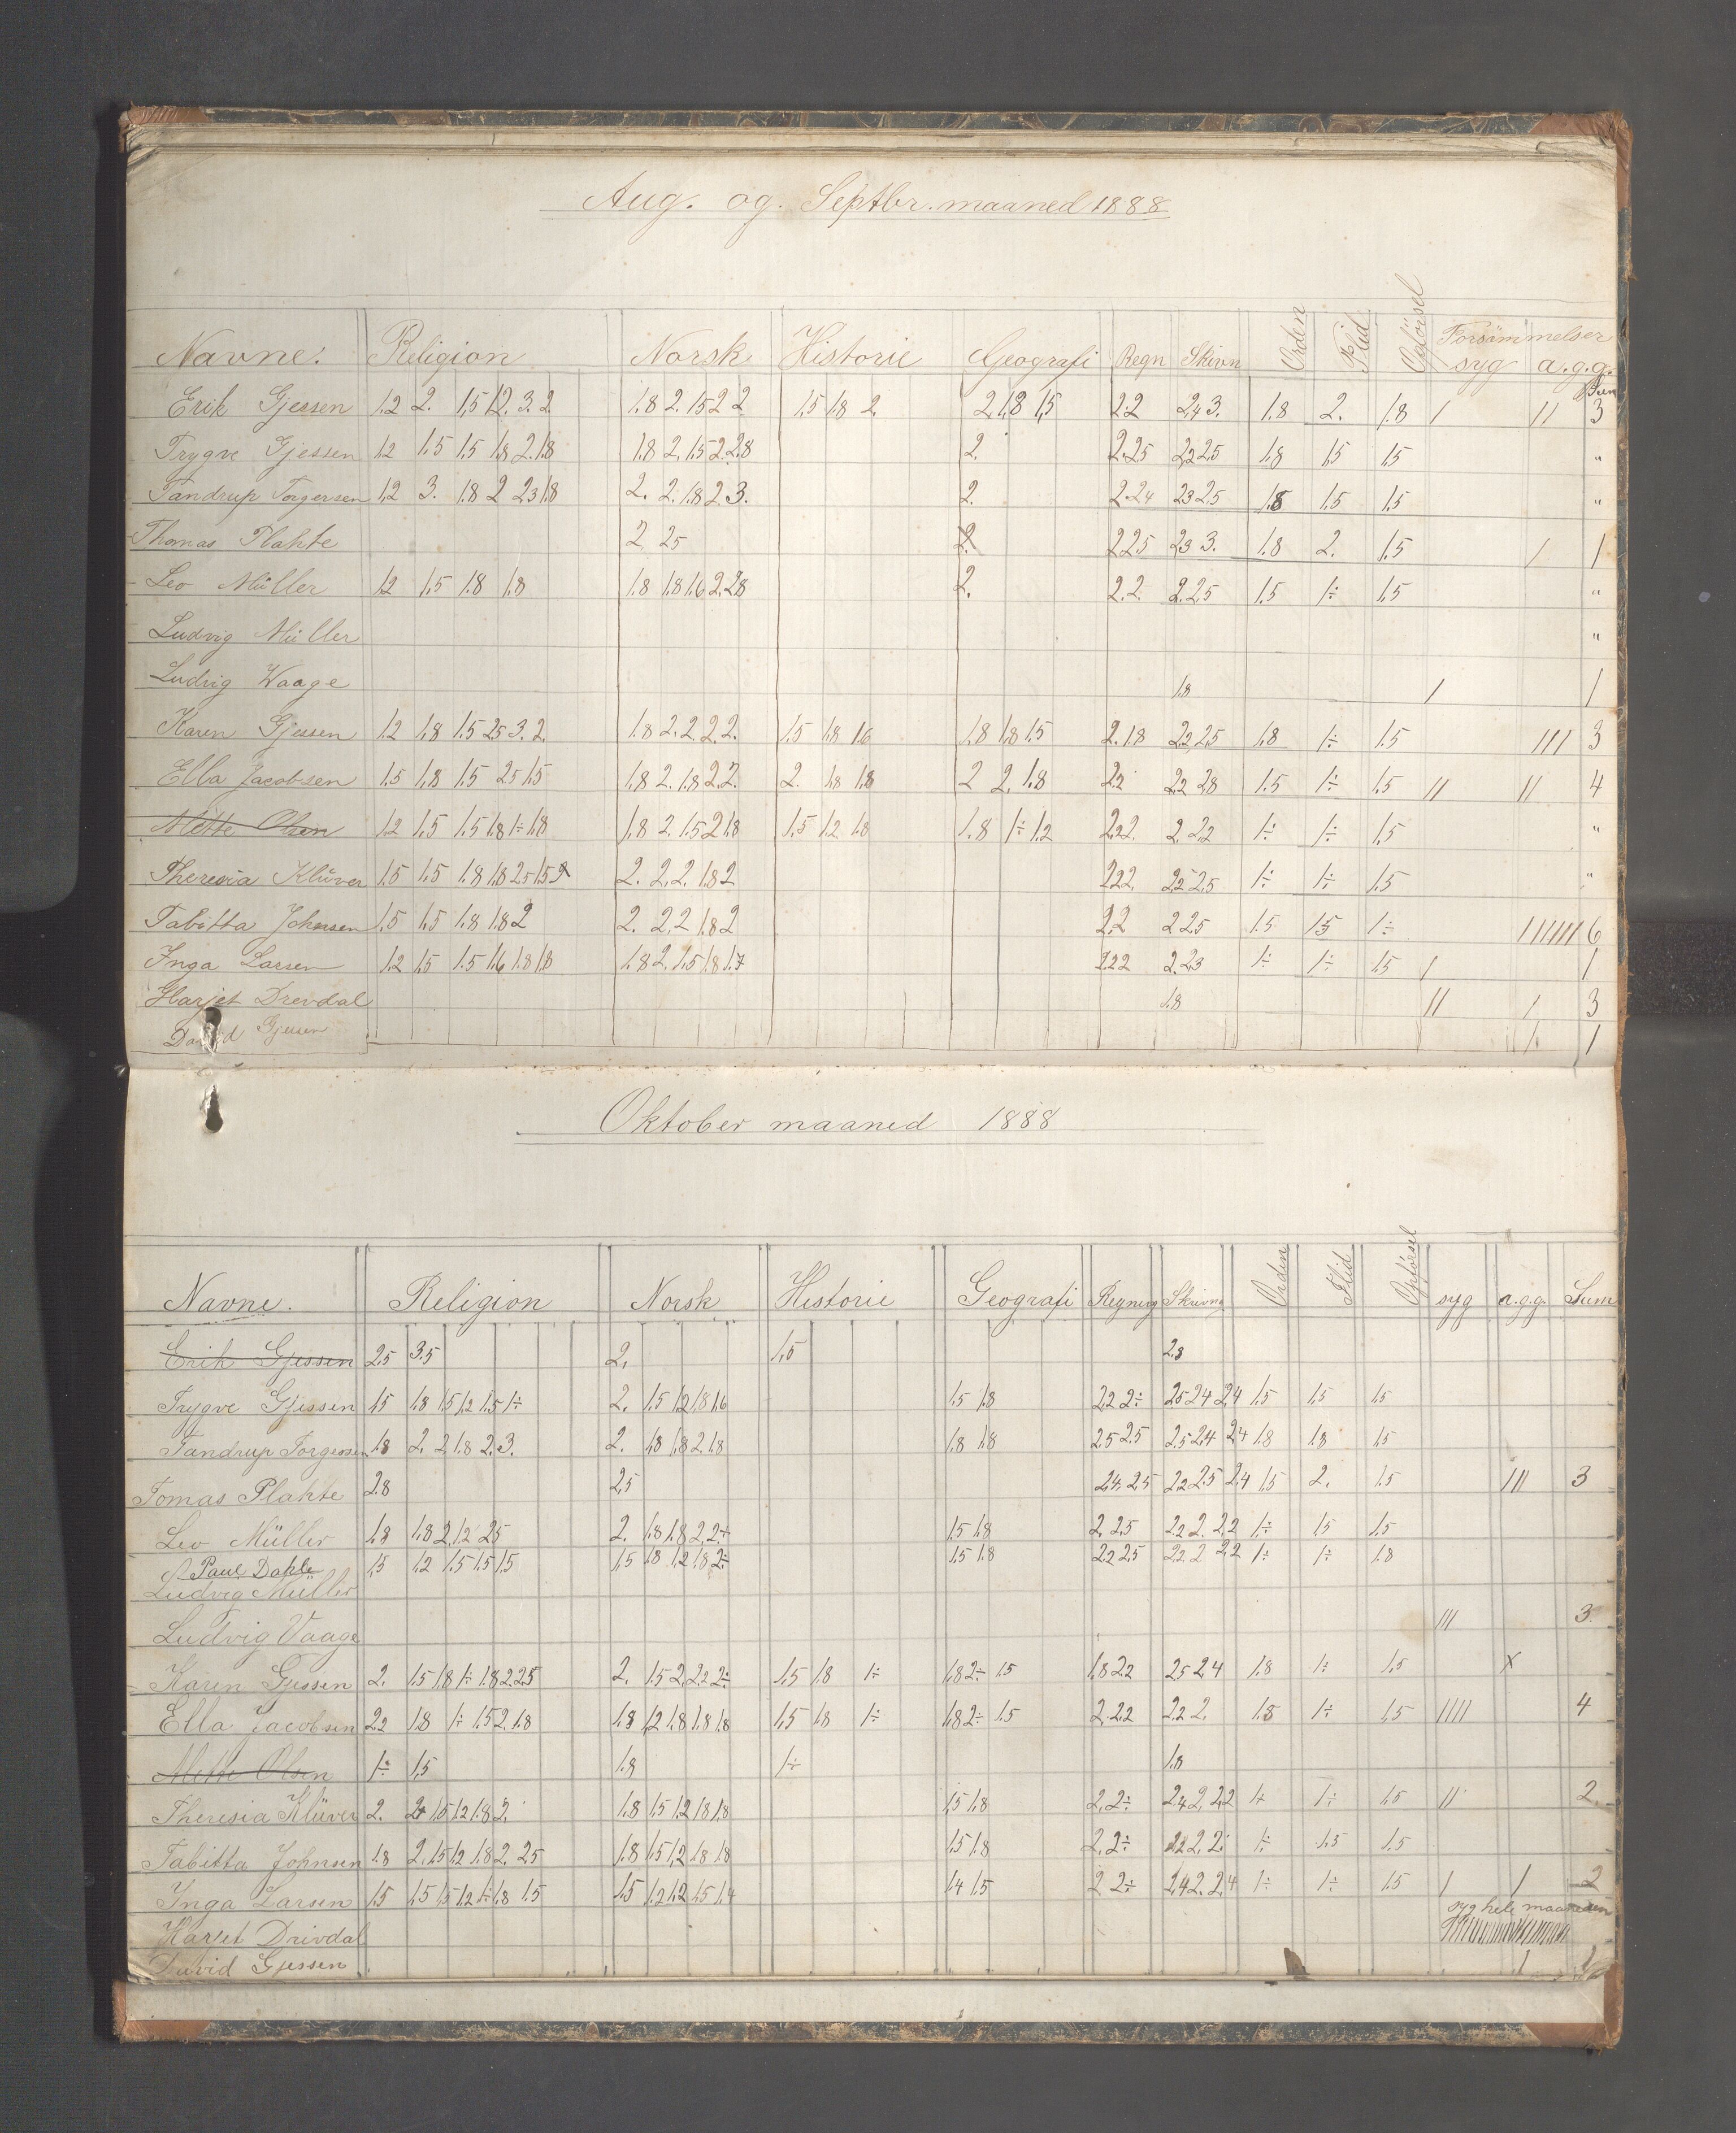 Aug. og. Septbr. maaned 1888
Navne. Religion Norsk Historie Geografi Regn Skivn Orden Flid Opförsel Forsömmelser syg a.g.g. Sum
Erik Gjessen 1,2 2. 1,5 1,2. 3. 2 1,8 2. 1,5 2 2 1,5 1,8 2. 2 1,8 1,5 2.2 2,4 3. 1,8 2. 1,8 / // 3
Trygve Gjessen 1,2 1,5 1,5 1,8 2. 1,8 1,8 2. 1,5 2 2,8 2. 2. 2,5 2,2 2,5 1,8 1,5 1,5 "
Tandrup Torgersen 1,2 3. 1,8 2 2,3 1,8 2. 2. 1,8 2. 3. 2. 2. 2,4 2,3 2,5 1,8 1,5 1,5 "
Thomas Plahte 2 2,5 2. 2 2,5 2,3 3. 1,8 2. 1,5 / 1
Leo Müller 1,2 1,5 1,8 1,8 1,8 1,8 1,6 2. 2,8 2. 2. 2. 2. 2,5 1,5 1÷ 1,5 "
Ludvig Müller "
Ludvig Waage 1,8 / 1
Karen Gjessen 1,2 1,8 1,5 2,5 3. 2. 1,8 2. 2. 2. 2. 1,5 1,8 1,6 1,8 1,8 1,5 2. 1,8 2,2 2,5 1,8 1÷ 1,5 /// 3
Ella Jacobsen 1,5 1,8 1,5 2,5 1,5 1,8 2. 1,8 2. 2. 2. 1,8 1,8 2 2. 1,8 2 2 2,2 2,8 1,5 1÷ 1,5 // // 4
Mette Olsen 1,2 1,5 1,5 1,8 1÷ 1,8 1,8 2. 1,5 2 1,8 1,5 1,2 1,8 1,8 1÷ 1,2 2,2 2. 2. 2,2 1÷ 1÷ 1,5 "
Theresia Klüver 1,5 1,5 1,8 1,8 2,5 1,5 2. 2. 2. 1,8 2 2 2 2. 2,2 2,5 1÷ 1÷ 1,5 "
Tabitta Johnsen 1,5 1,5 1,8 1,8 2 2. 2. 2 1,8 2 2.2 2 2,5 1,5 1,5 1÷ ////// 6
Inga Larsen 1,2 1,5 1,5 1,6 1,8 1,8 1,8 2. 1,5 1,8 1,7 2 2 2 2. 2,3 1÷ 1÷ 1,5 / 1
Harjet Drevdal 1,8 // / 3
David Gjessen / 1
Oktober maaned 1888
Navne. Religion Norsk Historie Geografi Regning Skrivng Orden Flid Opförsel syg a.g.g. Sum
Erik Gjessen 2,5 3,5 2. 1,5 2,8
Trygve Gjessen 1,5 1,8 1,5 1,2 1,5 1÷ 2. 1,5 1,2 1,8 1,6 1,5 1,8 2,2 2÷ 2,5 2,4 2,4 1,5 1,5 1,5
Tandrup Torgessen 1,8 2. 2 1,8 2. 3. 2. 1,8 1,8 2. 1,8 1,8 1,8 2,5 2,5 2,5 2,4 2,4 1,8 1,8 1,5
Tomas Plahte 2,8 2,5 2,4. 2,5 2,2 2,5 2,4 1,5 2. 1,5 /// 3
Leo Müller 1,8 1,8 2. 1,2 2,5 2. 1,8 1,8 2. 2÷ 1,5 1,8 2. 2,5 2,2 2. 2,2 1÷ 1,5 1,5
Paul Dahle 1,5 1,2 1,5 1,5 1,5 1,5 1,8 1,2 1,8 2÷ 1,5 1,8 2,2 2,5 2,2 2 2,2 1÷ 1÷ 1,8
Ludvig Müller
Ludvig Vaage /// 3
Karen Gjessen 2. 1,5 1,8 1÷ 1,8 2. 2,5 2. 1,5 2. 2,2 2÷ 1,5 1,8 1÷ 1,8 2÷ 1,5 1,8 2,2 2,5 2,4 1,8 1÷ 1,5 x
Ella Jacobsen 2,2 1,8 1÷ 1,5 2. 1,8 1,8 1,2 1,8 1,8 1,8 1,5 1,8 1÷ 1,8 2÷ 1,5 2. 2,2 2,2 2. 1,8 1÷ 1,5 //// 4
Mette Olsen 1÷ 1,5 1,8 1÷ 1,8
Theresia Klüver 2. 2÷ 1,5 1,2 1,8 2. 1,8 1,5 1,2 1,8 1,8 1,5 1,8 2. 2÷ 2,4 2. 2,2 1÷ 1÷ 1,5 // 2.
Tabitta Johnsen 1,8 2. 1,5 1,2 1,8 2. 2,5 1,8 1,5 1,2 1,8 1,8 1,5 1,8 2. 2÷ 2,2 2. 2. 1÷ 1,5 1,5
Inga Larsen 1,5 1,5 1,5 1,2 1÷ 1,8 1,5 1,5 1,2 1,2 1,5 1,4 1,4 1,5 2 2÷ 2,4 2. 2,4 1÷ 1÷ 1,5 / / 2
syg hele maaneden
Harjet Drivdal
David Gjessen /